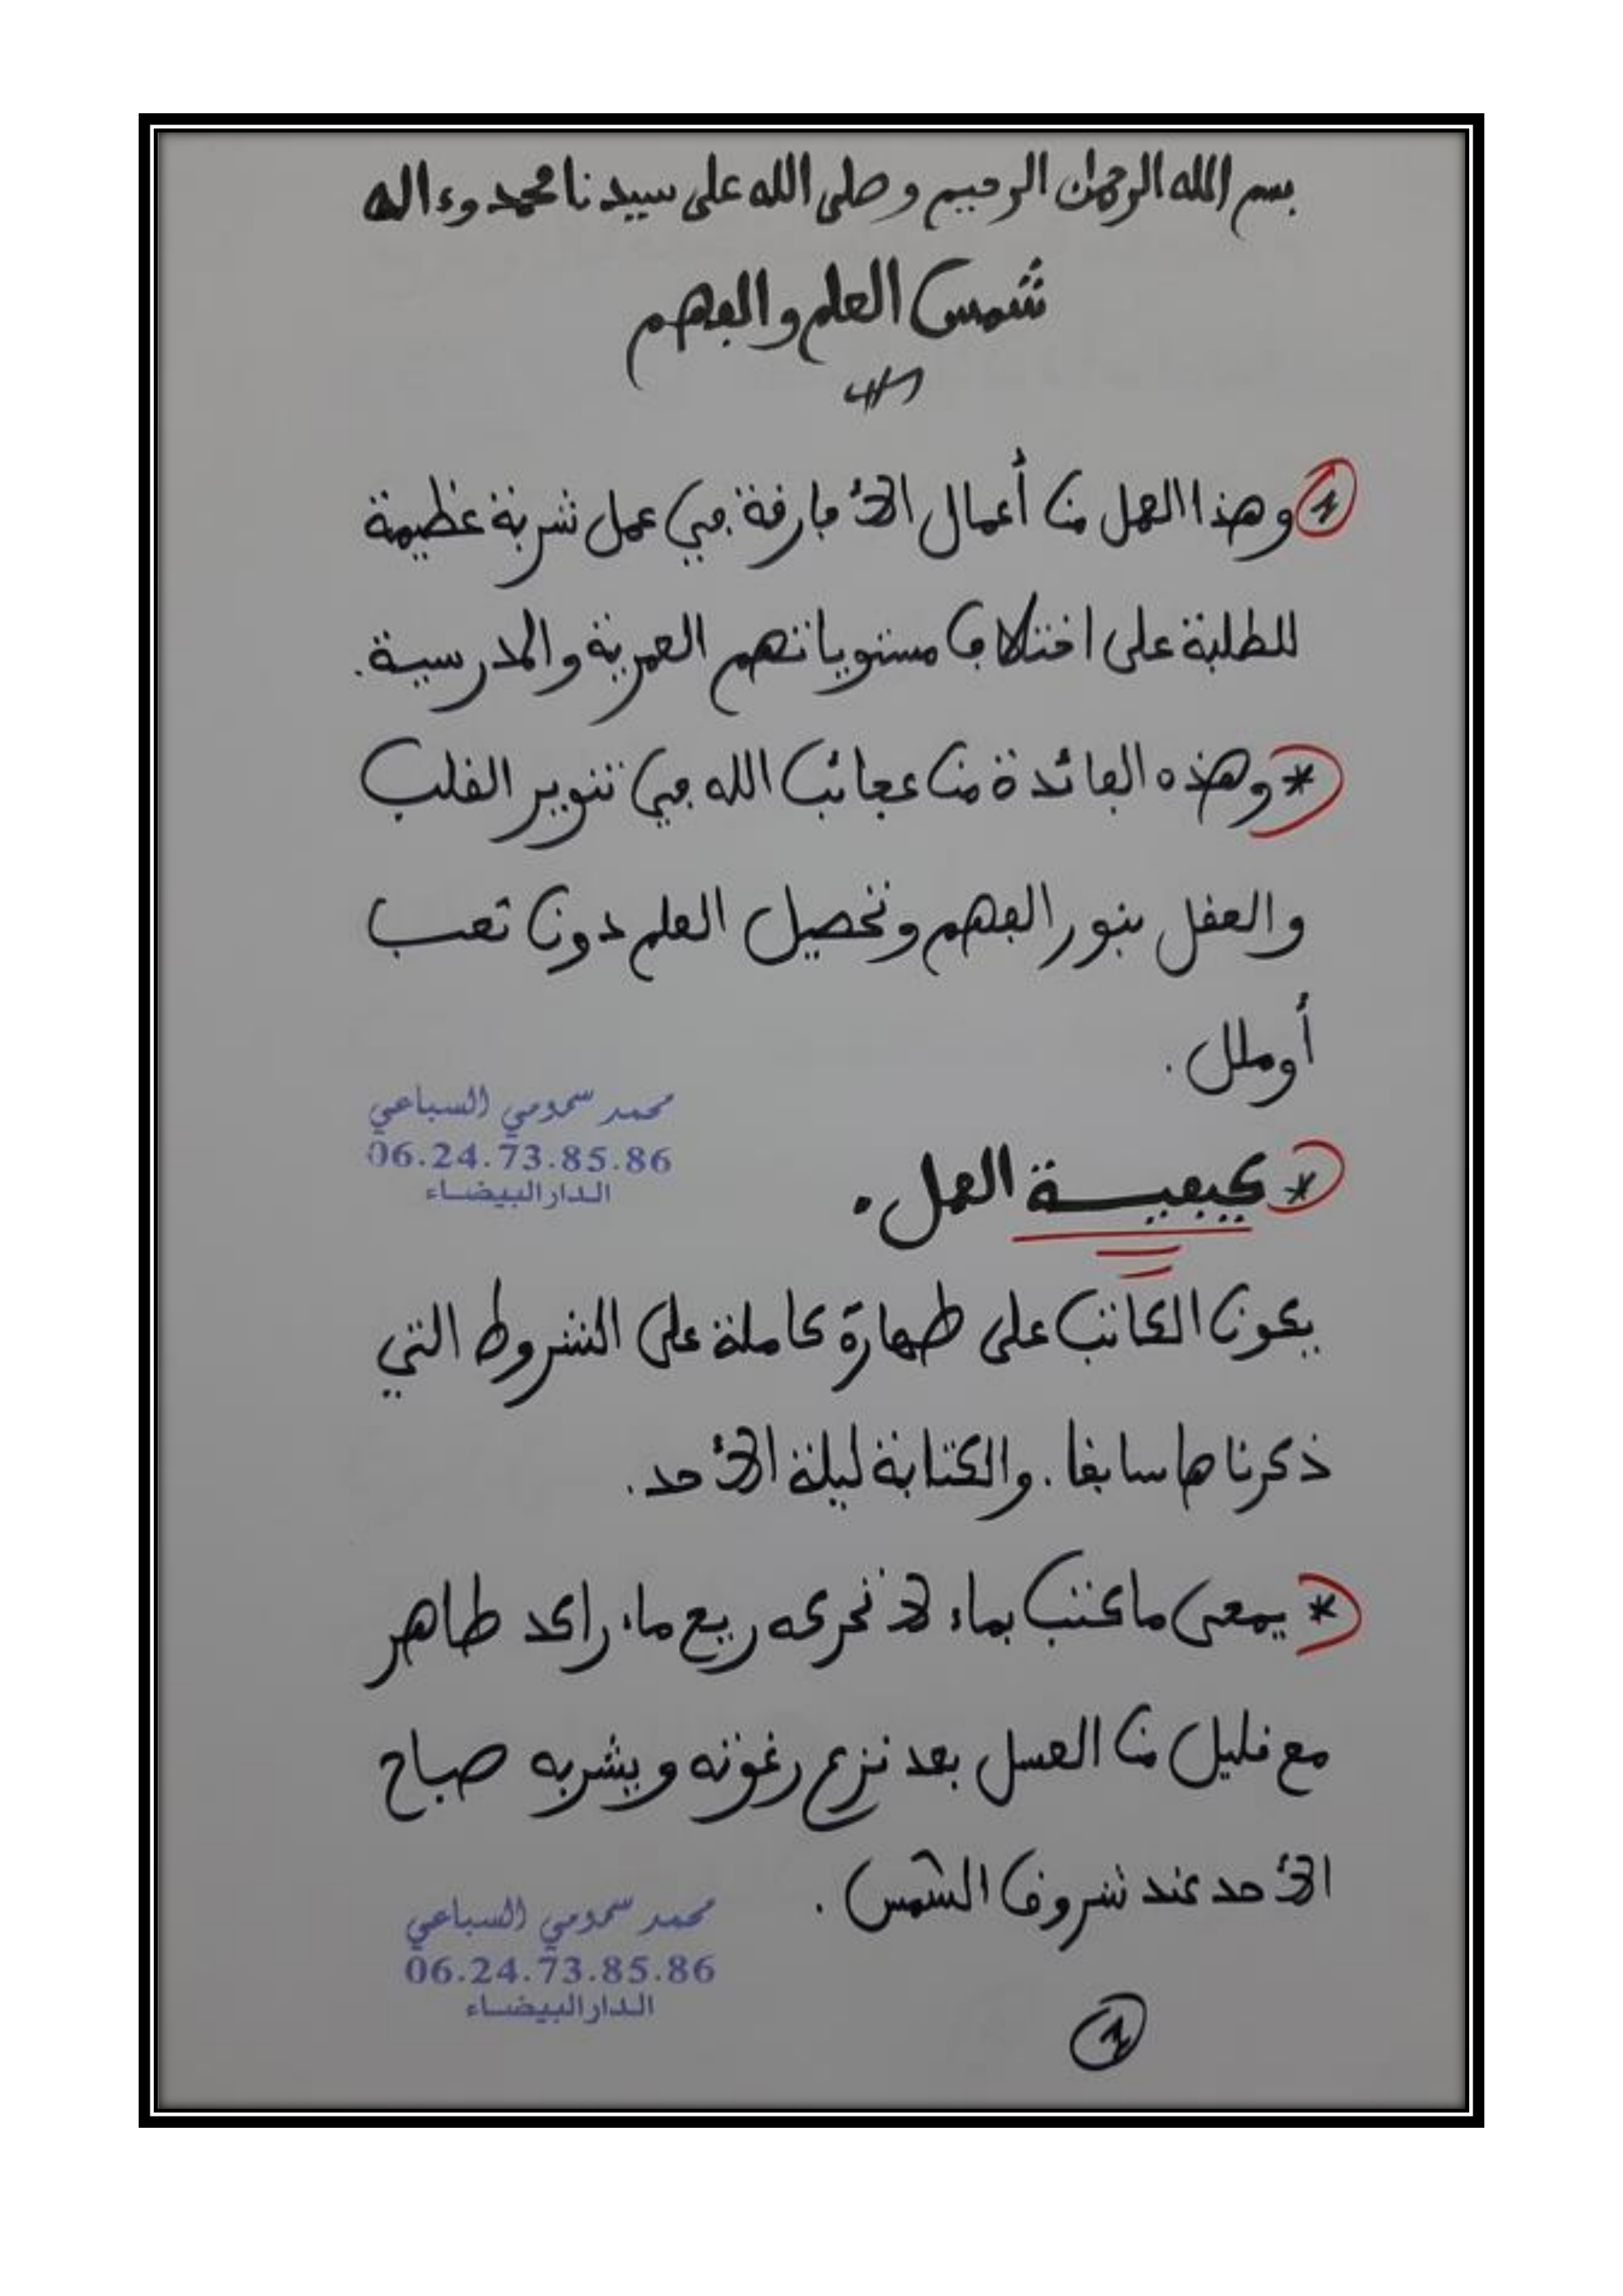 بسم الله الرحمان الرحيم وصلى الله على سيدنا محمد وءاله
شمس العلم والفهم
1 وهذا العمل من أعمال الأفارقة في عمل شربة عظيمة
للطلبة على اختلاف مستوياتهم العمرية والمدرسية.
* وهذه الفائدة من عجائب الله في تنوير القلب
والعقل بنور الفهم وتحصيل العلم دون تعب
أو ملل.
محمد سمومي السباعي
06.24.73.85.86
الدار البيضاء
* كيفيـــة العمل.
يكون الكاتب على طهارة كاملة على الشروط التي
ذكرناها سابقا. والكتابة ليلة الأحد.
* يمعى ما كتب بماء لا تحركه ريع ماء راكد طاهر
مع قليل من العسل بعد نزع رغوته ويشربه صباح
الأحد عند شروق الشمس.
محمد سمومي السباعي
06.24.73.85.86
الدار البيضاء
1